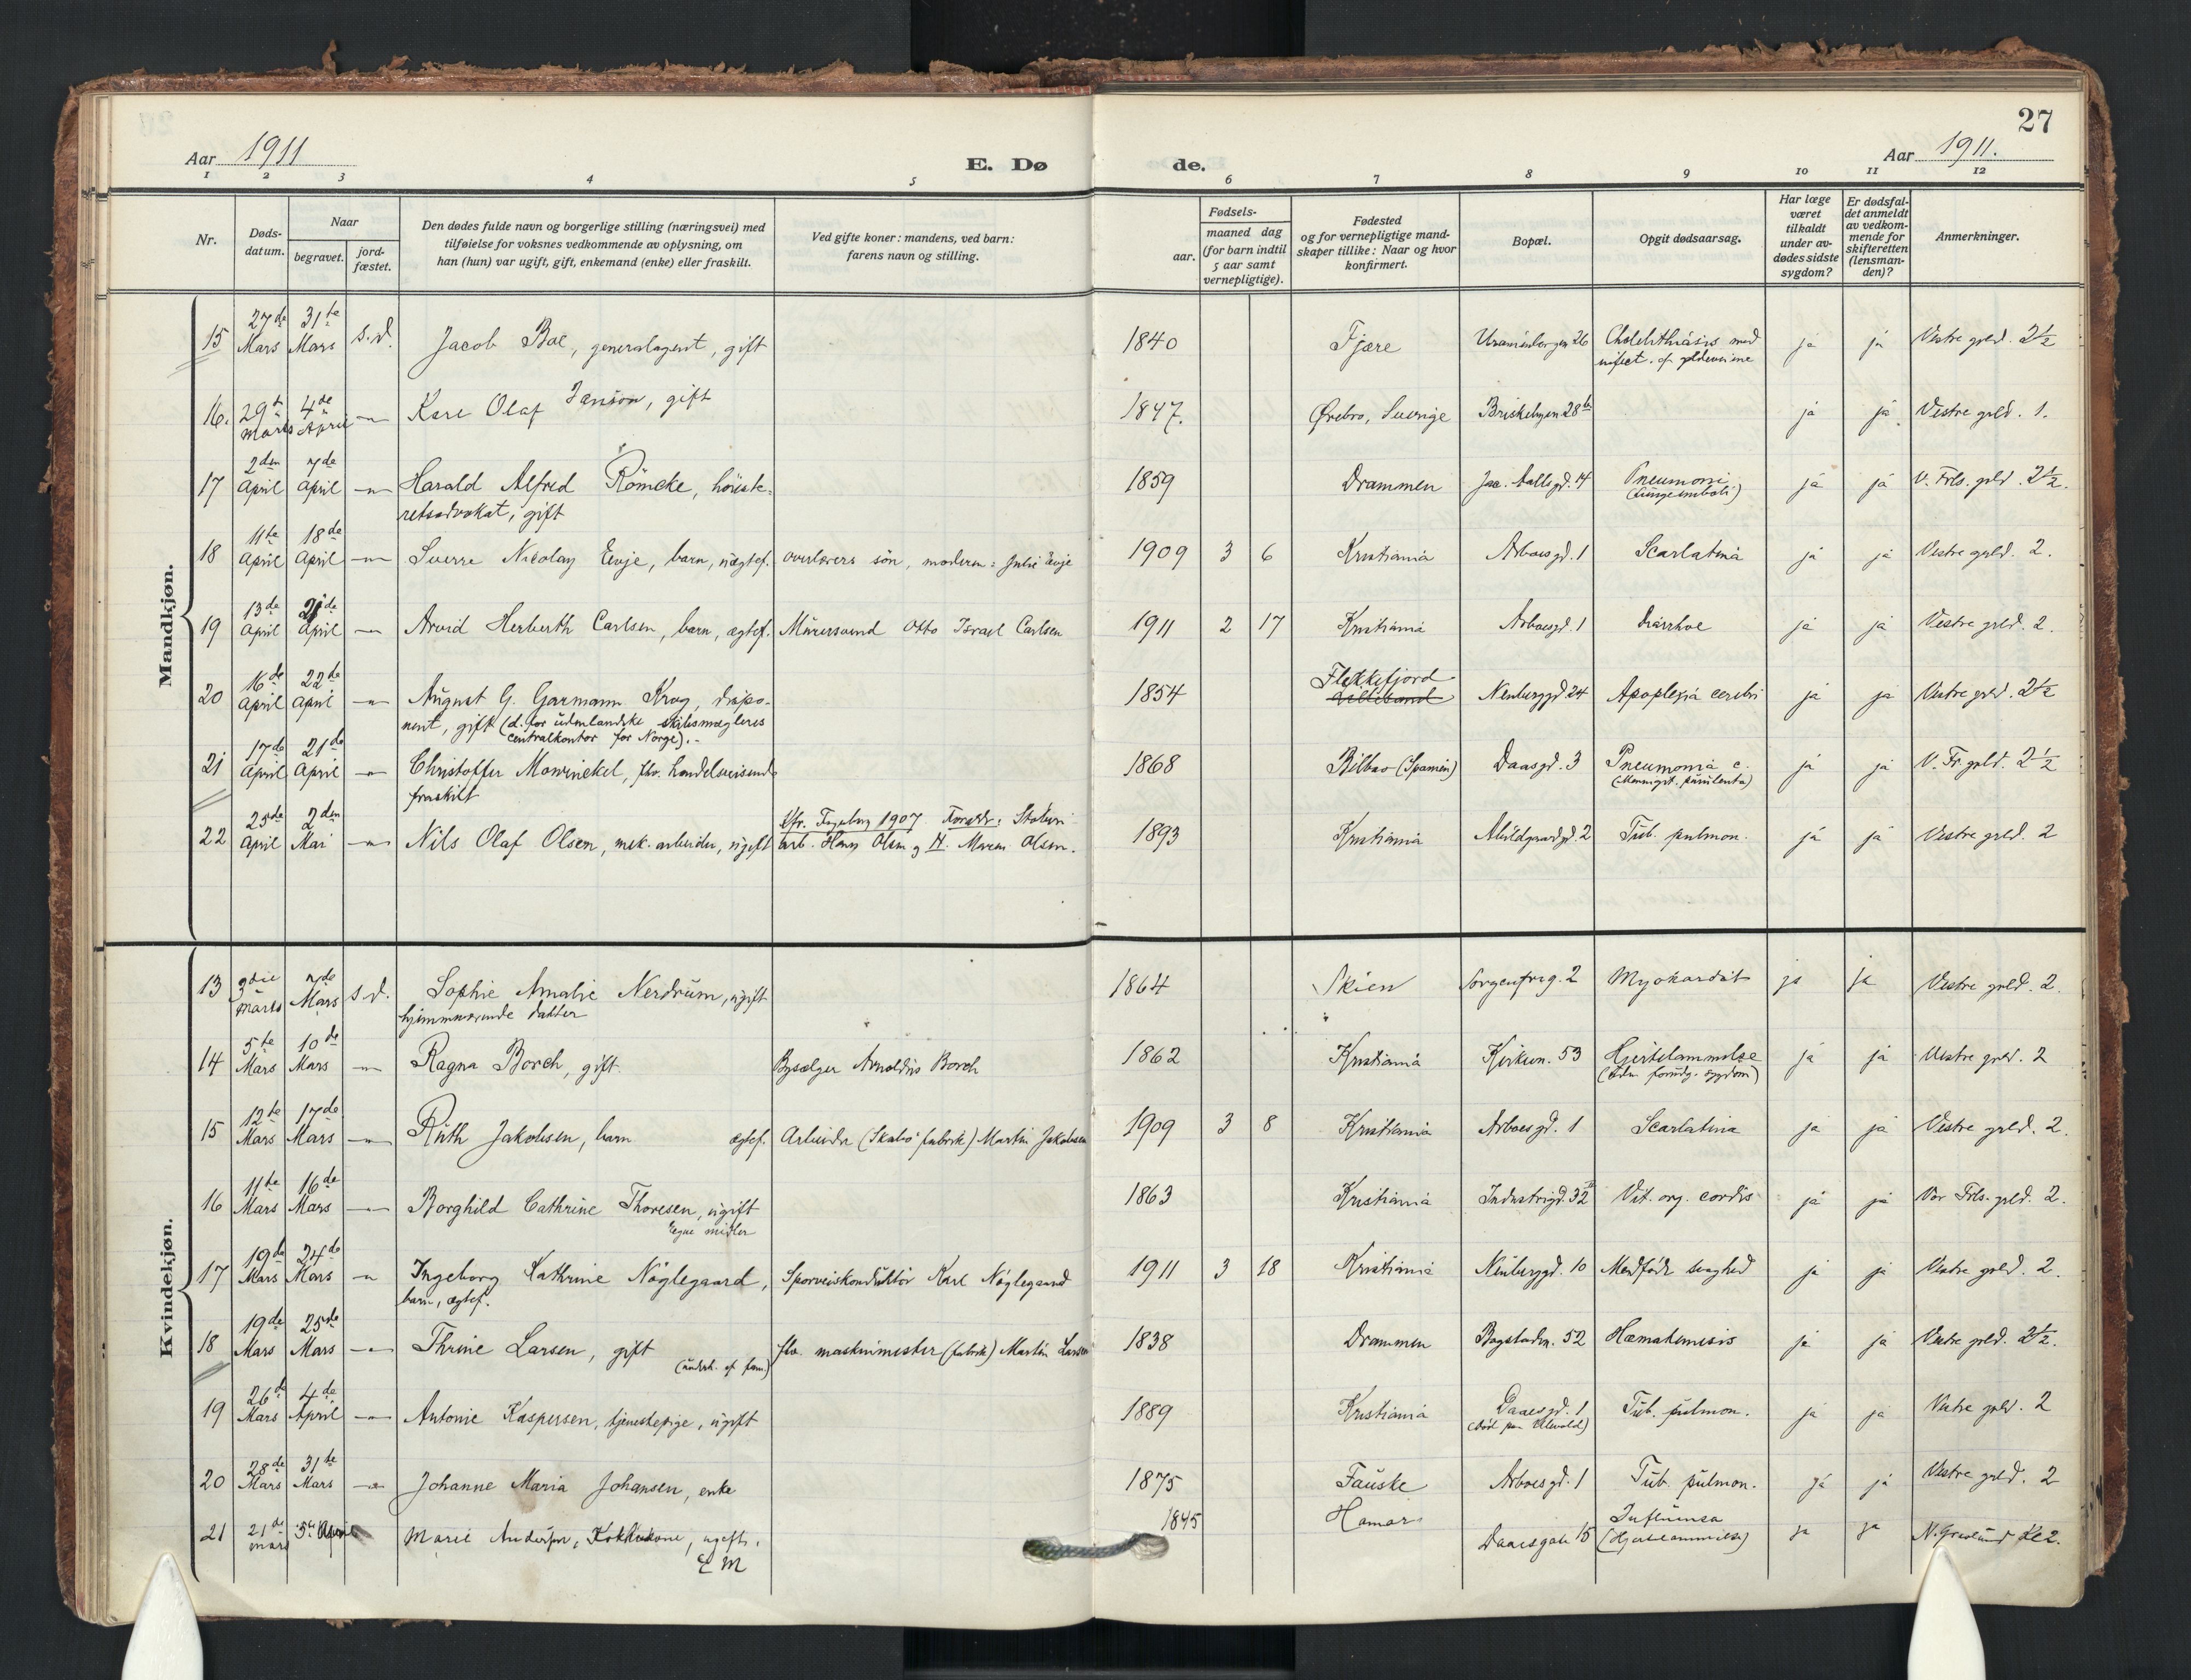 27
Aar 1911
E. Dø de.
Aar 1911.
1 2 3 4 5 6 7 8 9 10 11 12
Nr.
Døds-
datum.
Naar
begravet.
jord-
fæstet.
Den dødes fulde navn og borgerlige stilling (næringsvei) med
tilføielse for voksnes vedkommende av oplysning, om
han (hun) var ugift, gift, enkemand (enke) eller fraskilt.
Ved gifte koner: mandens, ved barn:
farens navn og stilling.
Fødsels-
aar.
maaned dag
(for barn indtil
5 aar samt
vernepligtige).
Fødested
og for vernepligtige mand-
skaper tillike: Naar og hvor
konfirmert.
Bopæl.
Opgit dødsaarsag.
Har læge
været
tilkaldt
under av-
dødes sidste
sygdom?
Er dødsfal-
det anmeldt
av vedkom-
mende for
skifteretten
(lensman-
den)?
Anmerkninger.
Mandkjøn.
15 27de Mars 31te Mars s.d. Jacob Boe, generalagent, gift 1840 Fjære Uranienborgvn 26 Cholelithiasis med
ja ja Vestre grld. 2½
16. 29de Marts 4de April -"- Karl Olaf Janson, gift 1847. Ørebro, Sverige Briskebyvn 28b ja ja Vestre grld. 1.
17 2den April 7de April -"- Harald Alfred Römcke, høieste-
retsadvokat, gift 1859 Drammen Jac. Aallsgd. 14 Pneumoni
(Lungeemboli) ja ja V. Frls. grld. 2½.
18 11te April 18de April -"- Sverre Nicolay Evje, barn, uægtef. overlærers søn, moderen: Julie Evje 1909 3 6 Kristiania Arboesgd. 1 Scarlatina ja ja Vestre grld. 2.
19 13de April 21de April -"- Arvid Herberth Carlsen, barn, ægtef. Murersvend Otto Israel Carlsen 1911 2 17 Kristiania Arboesgd. 1 Diarrhoe ja ja Vestre grld. 2.
20 16de April 22de April -"- August G. Garmann Krog, dispo-
nent, gift (d. for udenlandske skibsmægleres
centralkontor for Norge).- 1854 Flekkefjord
Lillesand Neubergd 24 Apoplexia cerebri ja ja Vestre grld. 2½
21 17de April 21de April -"- Christoffer Mowinckel, fhv. handelsreisende
fraskilt 1868 Bilbao (Spanien) Daasgd. 3 Pneumonia c.
(Meningit. purulenta) ja ja V. Fr. grld. 2½
22 25de April 2den Mai -"- Nils Olaf Olsen, mek. arbeider, ugift
Kfr. Fagerborg 1907 Forældre:
arb. Hans Olsen og H. Maren Olsen. 1893 Kristiania Abildgaardgd. 2 Tub. pulmon. ja ja Vestre grld. 2
Kvindekjøn.
13 3die Marts 7de Mars s.d. Sophie Amalie Nerdrum, ugift
hjemmeværende datter 1864 Skien Sorgenfrig. 2 Myokardit ja ja Vestre grld. 2.
14 5te Mars 10de Mars -"- Ragna Borch, gift. Bysælger Arnoldus Borch 1862 Kristiania Kirkevn. 53 Hjertelammelse
ja ja Vestre grld. 2
15 12te Mars 17de Mars -"- Ruth Jakobsen, barn ægtef. Arbeider (Skabo fabrik) Martin Jakobsen 1909 3 8 Kristiania Arboesgd. 1 Scarlatina ja ja Vestre grld. 2.
16 11te Mars 16de Mars -"- Borghild Cathrine Thoresen, ugift
Egne midler 1863 Kristiania Industrigd. 32 Vit. org. cordis ja ja Vor Frls. grld. 2.
17 19de Mars 24de Mars -"- Ingeborg Kathrine Nøglegaard,
barn, ægtef. Sporveiskonduktør Karl Nøglegaard 1911 3 18 Kristiania Neubergd. 10 Medfødt svaghed ja ja Vestre grld. 2.
18 19de Mars 25de Mars -"- Thrine Larsen, gift
(undrh. af fam) fhv. maskinmester (fabrik) Martin Larsen 1838 Drammen Bogstadvn. 52 Hæmatemesis ja ja Vestre grld. 2½.
19 26de Mars 4de April -"- Antonie Kaspersen, tjenestepige, ugift 1889 Kristiania Daaesgd. 1
(død paa Ullevold) Tub. pulmon. ja ja Vestre grld. 2
20 28de Mars 31te Mars -"- Johanne Maria Johansen, enke 1875 Fauske Arboesgd. 1 Tub. pulmon. ja ja Vestre grld. 2
21 21de mars 5te April Marie Andersen, Kokkekone, ugift.
E M 1845 Hamar Daaesgate 15 Influensa
(Hjertelammelse) ja ja N. Gravlund Kl 2.